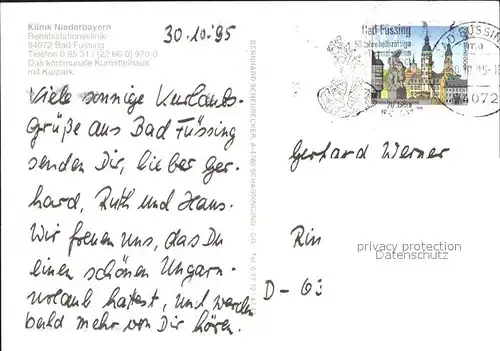 Klinik Niederbayern
Rehabilitationsklinik
94072 Bad Füssing
Telefon 0 85 31 / (22-66-0) 970-0
Das kommunale Kurmittelhaus
mit Kurpark
30.10.95
Viele sonnige Kurlaubs-
grüße aus Bad Füssing
senden Dir, lieber Ger-
hard, Ruth und Hans.
Wir freuen uns, das Du
einen schönen Ungarn-
urlaub hattest, und werden
bald mehr von Dir hören.
Bad Füssing
50 Jahre heilkräftige
94072
Gerhard Werner
Rin
privacy protection
D-63